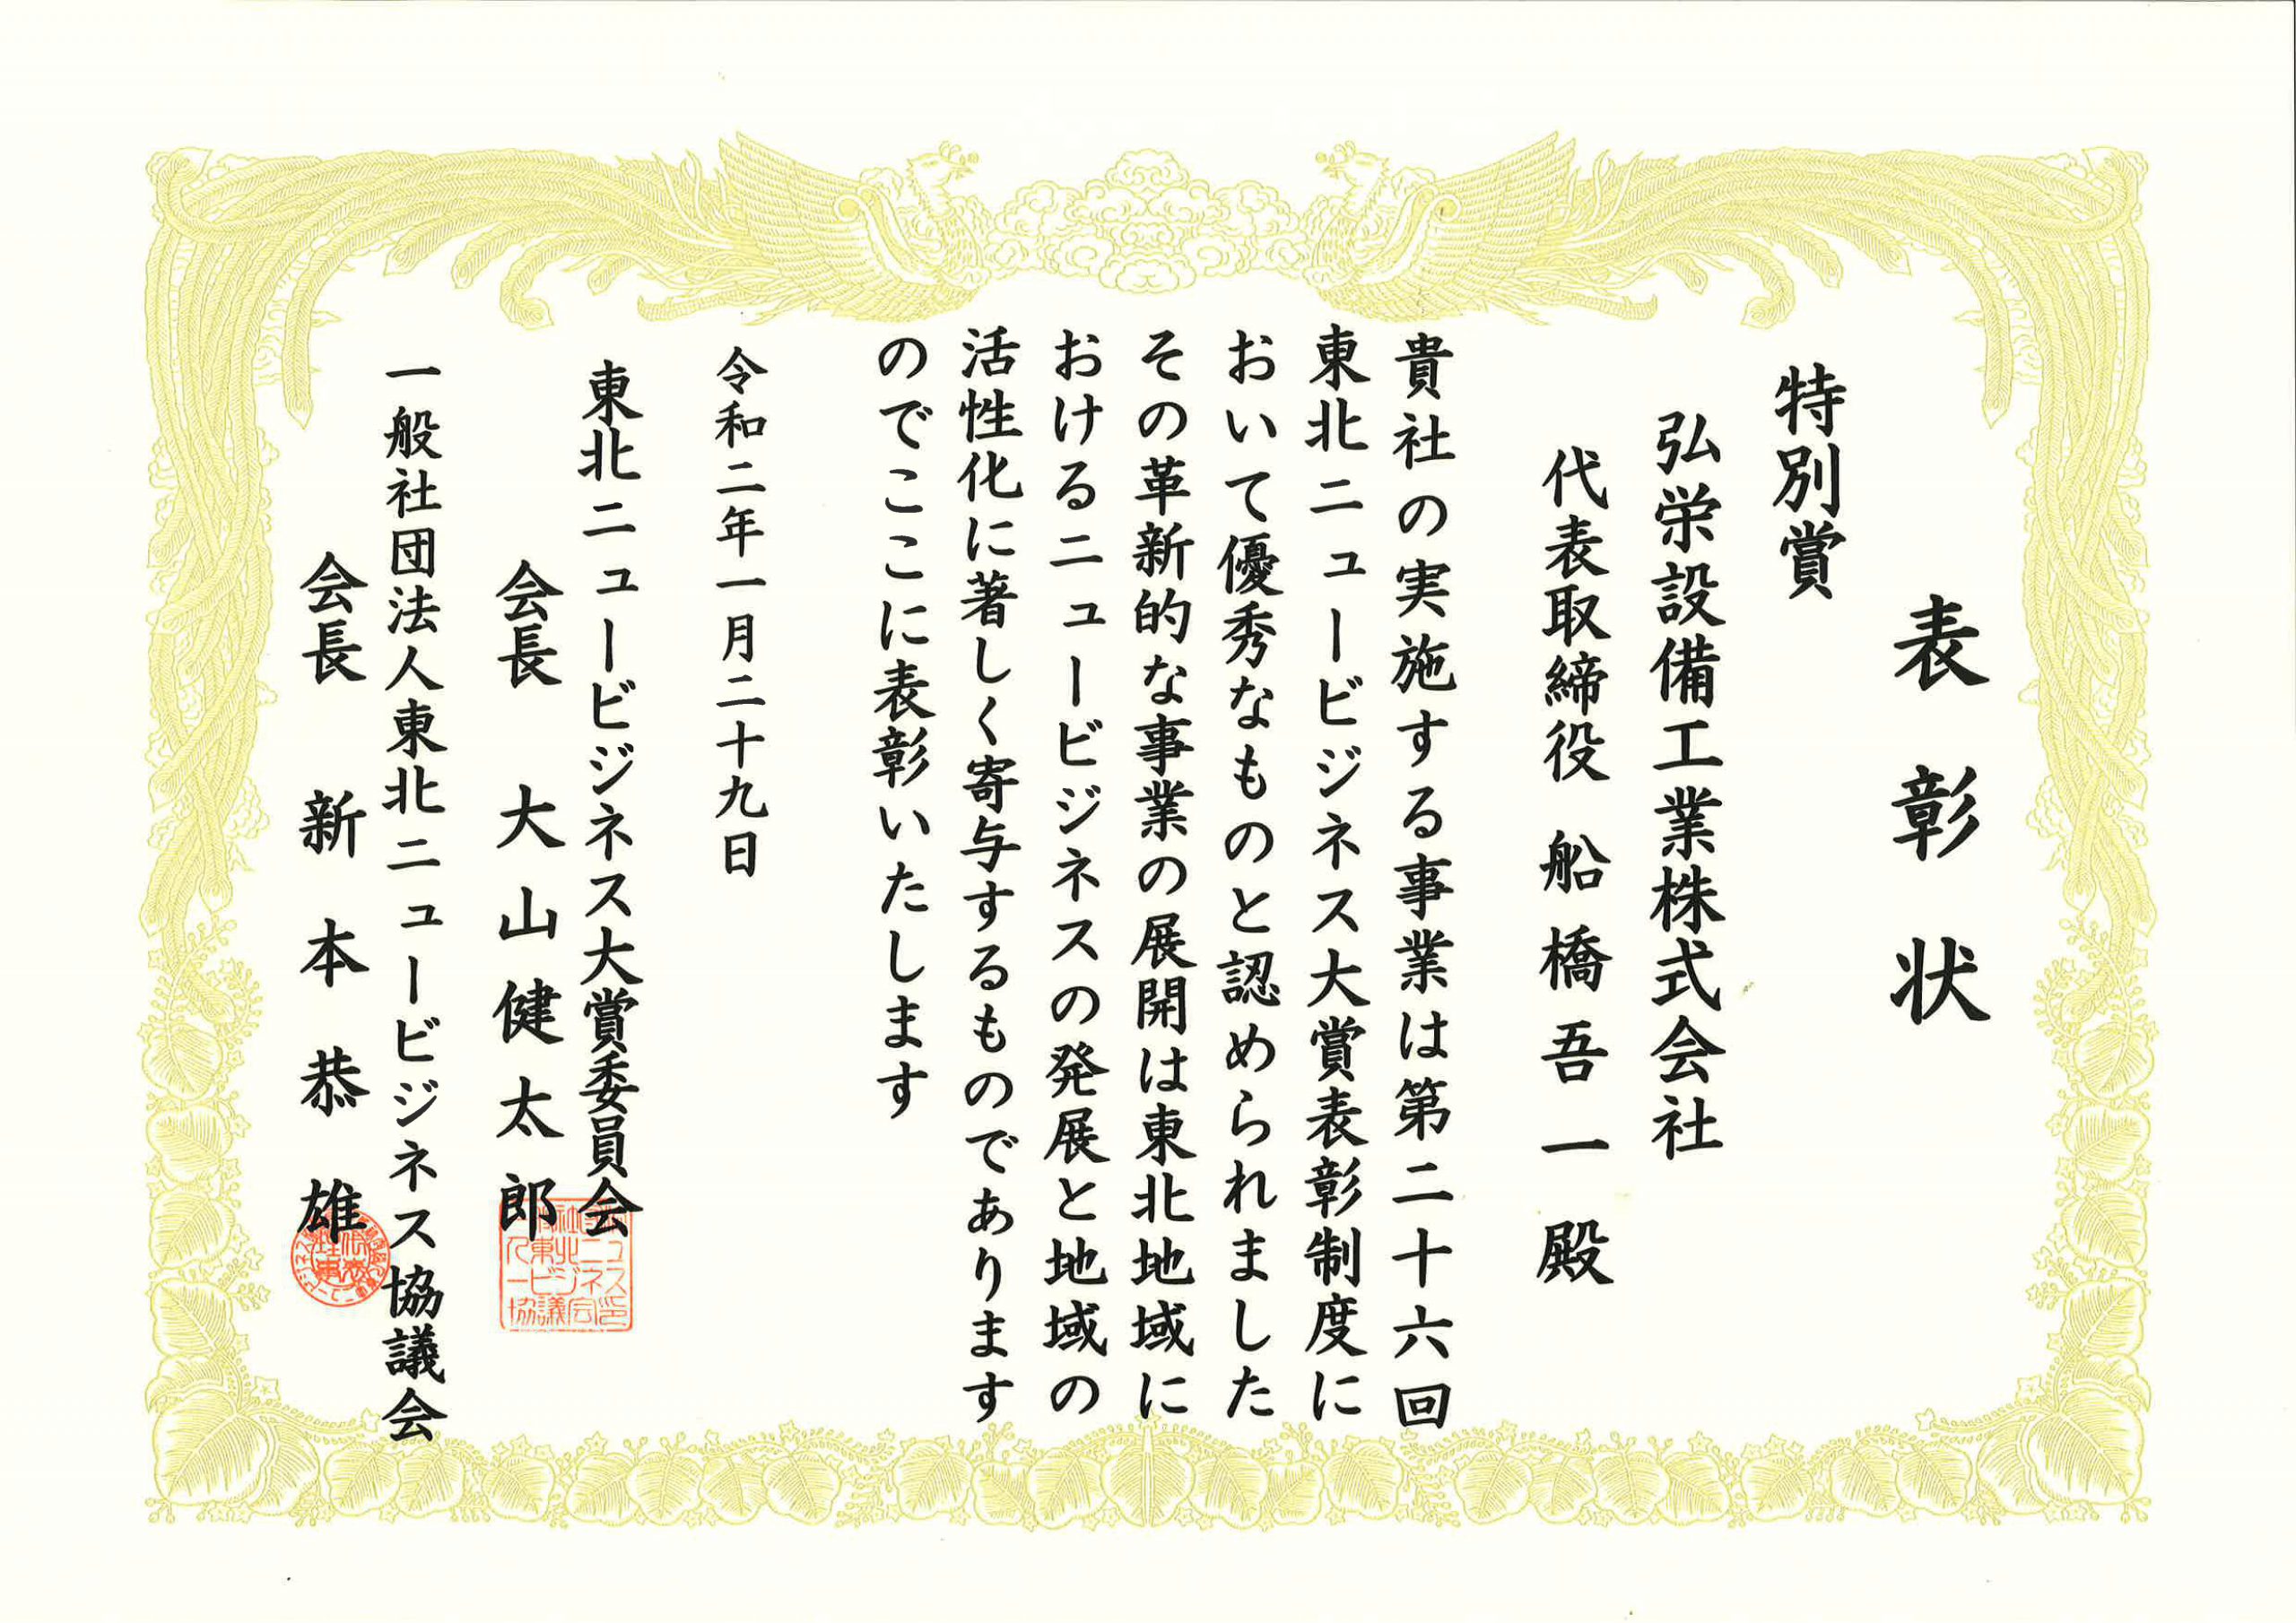 表彰状
特別賞
弘栄設備工業株式会社
代表取締役 船橋吾一 殿
貴社の実施する事業は第二十六回
東北ニュービジネス大賞表彰制度に
おいて優秀なものと認められました
その革新的な事業の展開は東北地域に
おけるニュービジネスの発展と地域の
活性化に著しく寄与するものであります
のでここに表彰いたします
令和二年一月二十九日
東北ニュービジネス大賞委員会
会長 大山健太郎
一般社団法人東北ニュービジネス協議会
会長 新本恭雄